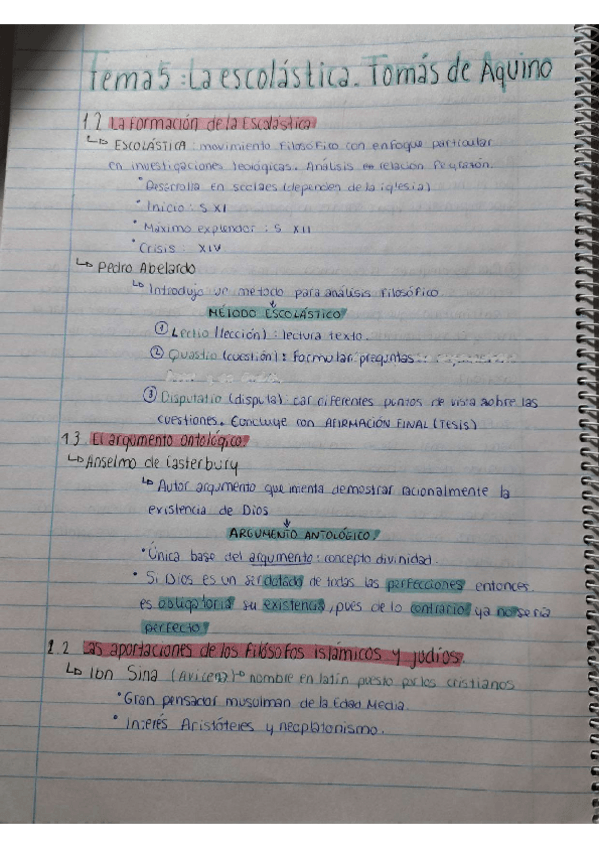 Tema 5: La escolástica. Tomás de Aquino
1.2 La Formación de la Escolástica
↳ ESCOLÁSTICA: movimiento filosófico con enfoque particular
en investigaciones teológicas. Análisis relación Fe y razón.
• Desarrolla en (dependen de la iglesia)
• Inicio: S XI
• Máximo explendor: S XII
• Crisis: XIV
↳ Pedro Abelardo
↳ Introdujo un método para análisis filosófico.
MÉTODO ESCOLÁSTICO
① Lectio (lección): lectura texto.
② Quastio (cuestión): Formular preguntas
③ Disputatio (disputa): dar diferentes puntos de vista sobre las
cuestiones. Concluye con AFIRMACIÓN FINAL (TESIS)
1.3. El argumento ontológico.
↳ Anselmo de Casterbury
↳ Autor argumento que intenta demostrar racionalmente la
existencia de Dios
ARGUMENTO ANTOLÓGICO
• Única base del argumento: concepto divinidad.
• Si Dios es un ser dotado de todas las perfecciones entonces
es obligatoria su existencia, pues de lo contrario ya no sería
perfecto
1.2 Las aportaciones de los filósofos islámicos y judíos.
↳ Ibn Sina (Avicena) → nombre en latín puesto por los cristianos
• Gran pensador musulman de la Edad Media.
• Interés Aristóteles y neoplatonismo.